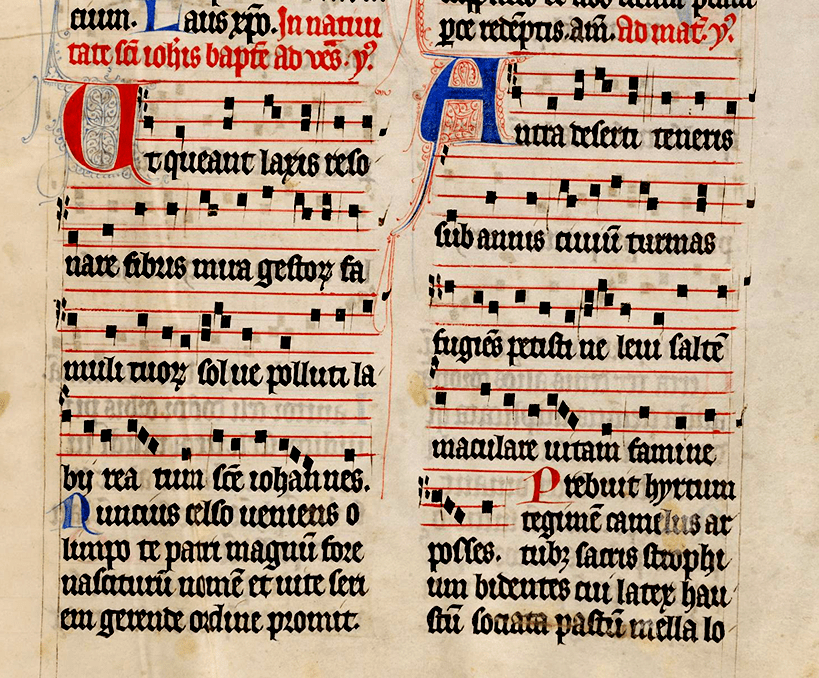 cuum. Laus xp̄o. In natiui
tate sc̄i ioh̄is bapt̄e ad ves̄. y̾.
Ut queant laxis reso
nare fibris mira gestoꝝ fa
muli tuoꝝ solue polluti la
bij rea tum sc̄e iohannes.
Nuncius celso ueniens o
limpo te patri magnū fore
nasciturū nomē et uite seri
em gerende ordine promit.
p̄ce redēptis. am̄. Ad mat̄. y̾.
Antra deserti teneris
sub annis ciuiū turmas
fugiēs petisti ne leui saltē
maculare uitam famine
Prebuit hyrtum
tegimē camelus ar
posses. tubꝫ sacris strophi
um bidentes cui latex hau
stū sociata pastū mella lo